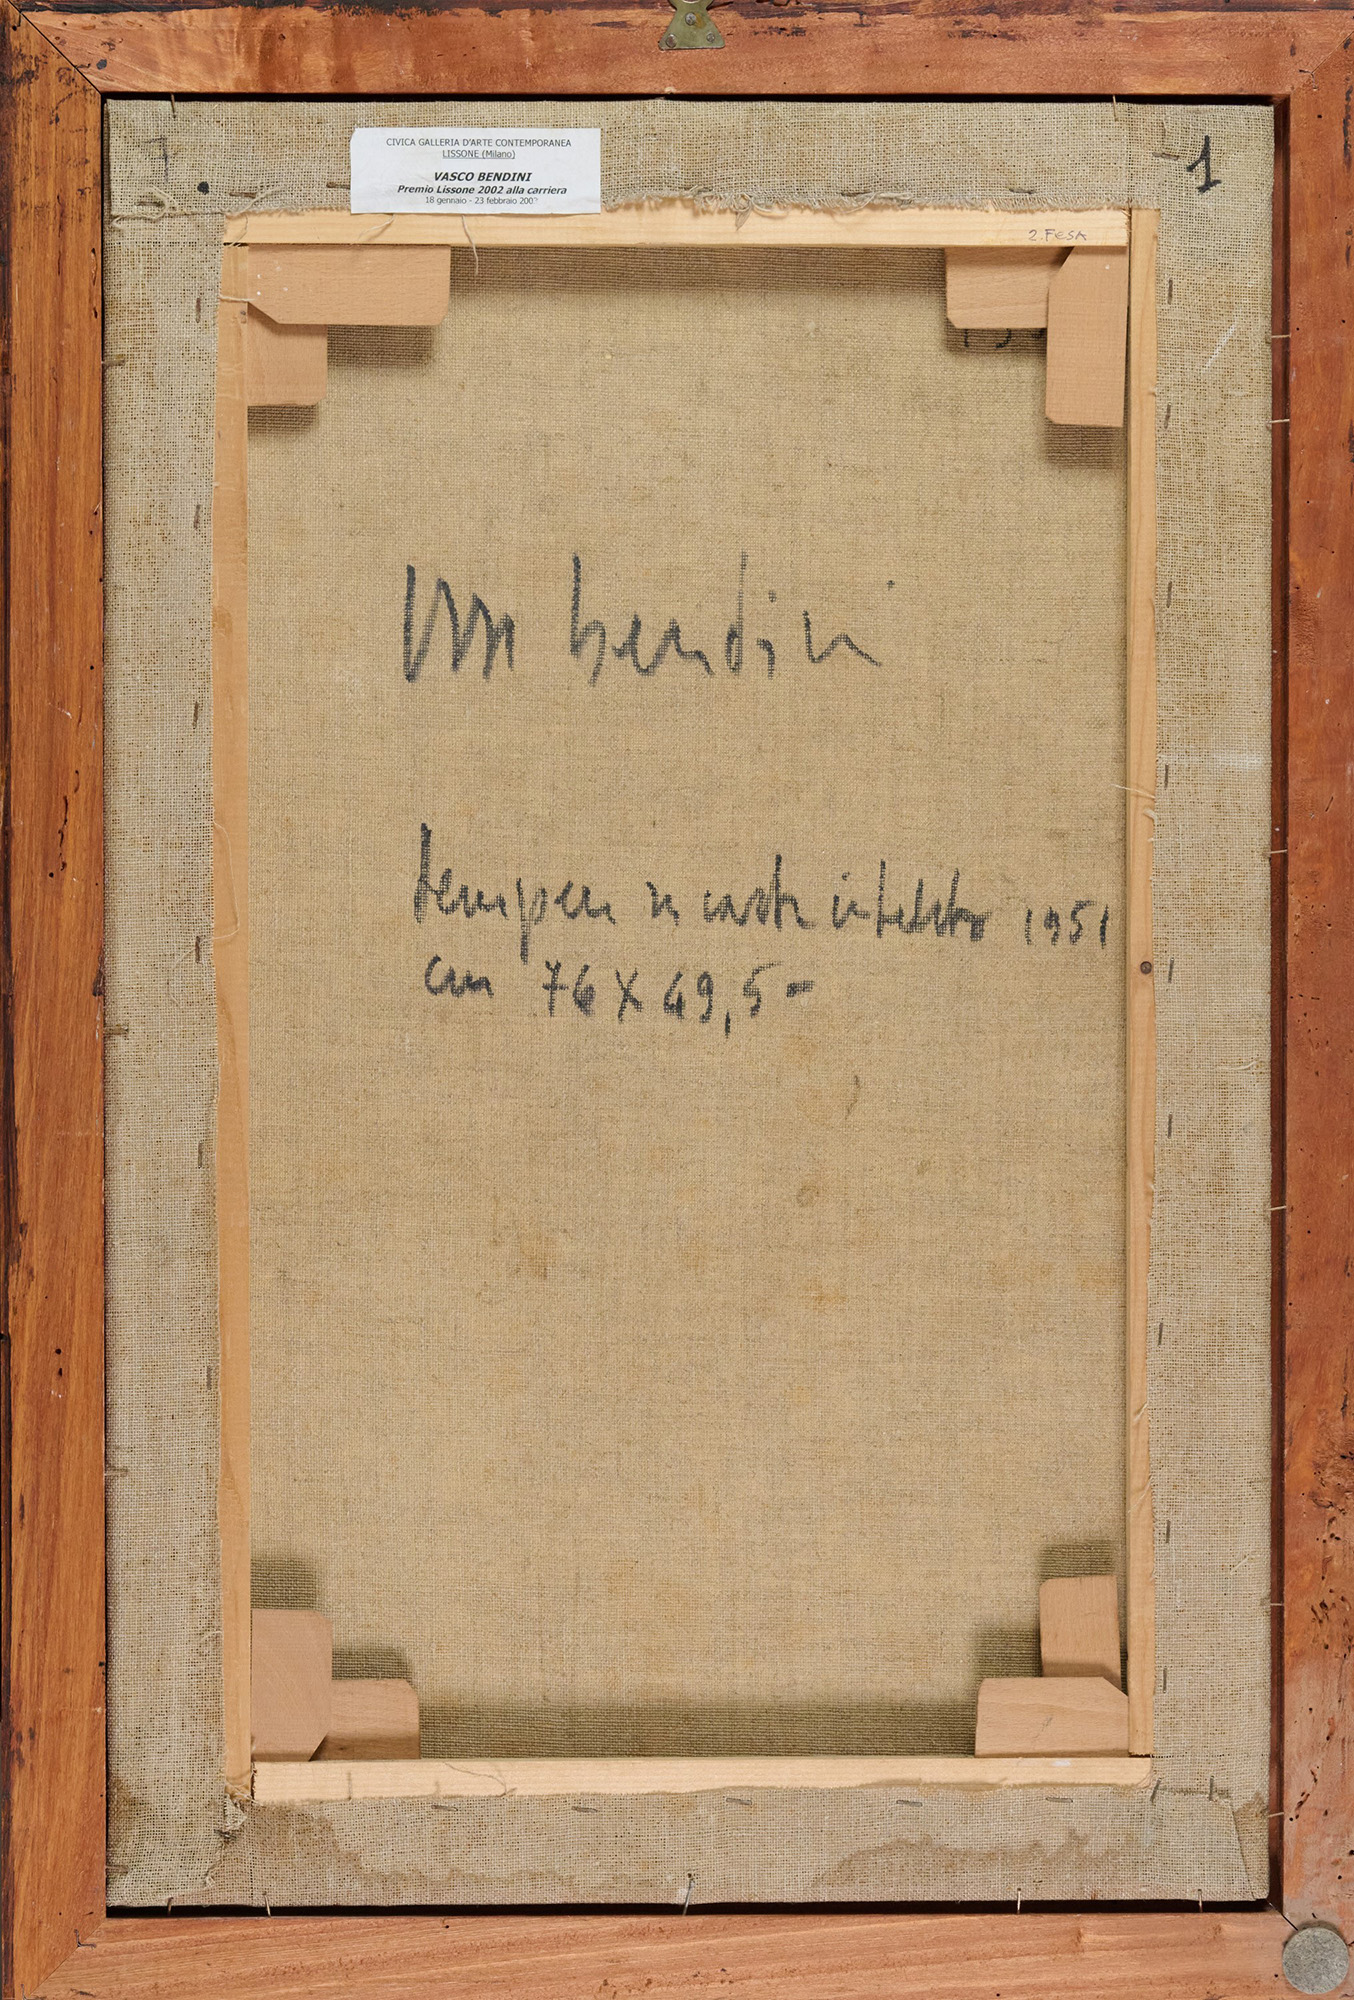 CIVICA GALLERIA D'ARTE CONTEMPORANEA
LISSONE (Milano)
VASCO BENDINI
Premio Lissone 2002 alla carriera
18 gennaio - 23 febbraio
1
2. FESA
bendini
tempera su carta intelata 1951
cm 76 X 49,5 -